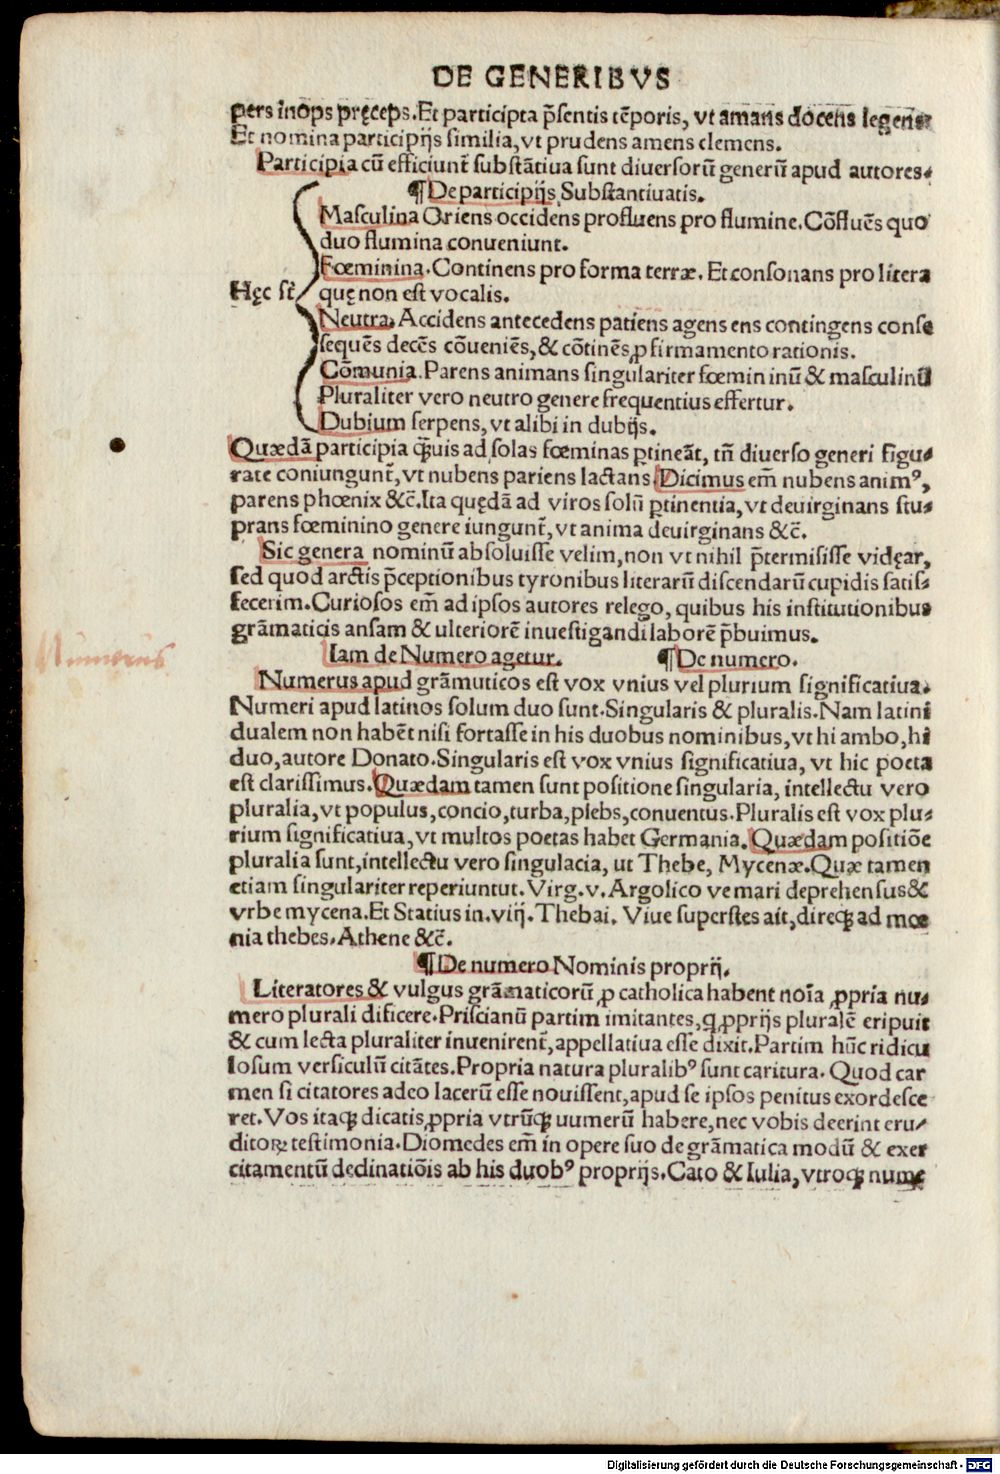 DE GENERIBVS
pers inops pręceps. Et participta p̃sentis tẽporis, vt amans docens legens
Et nomina participijs similia, vt prudens amens clemens.
Participia cũ efficiunt̃ substãtiua sunt diuersorũ generũ apud autores.
¶ De participijs Substantiuatis.
Masculina Oriens occidens profluens pro flumine. Cõfluẽs quo
duo flumina conueniunt.
Fœminina. Continens pro forma terræ. Et consonans pro litera
Hęc st̃ quę non est vocalis.
Neutra. Accidens antecedens patiens agens ens contingens conse
sequẽs decẽs cõueniẽs, & cõtinẽs ꝓ firmamento rationis.
Cõmunia. Parens animans singulariter fœmin inũ & masculinũ
Pluraliter vero neutro genere frequentius effertur.
Dubium serpens, vt alibi in dubijs.
Quædã participia q̃uis ad solas fœminas ꝑtineãt, tñ diuerso generi figu-
rate coniungunt̃, vt nubens pariens lactans. Dicimus em̃ nubens animꝰ,
parens phœnix &c̃. Ita quędã ad viros solũ ꝑtinentia, vt deuirginans stu-
prans fœminino genere iungunt̃, vt anima deuirginans &c̃.
Sic genera nominũ absoluisse velim, non vt nihil p̃termisisse vidęar,
sed quod arctis p̃ceptionibus tyronibus literarũ discendarũ cupidis satis-
fecerim. Curiosos em̃ ad ipsos autores relego, quibus his institutionibus
grãmaticis ansam & ulteriorẽ inuestigandi laborẽ p̃buimus.
Numerus
Iam de Numero agetur. ¶ De numero.
Numerus apud grãmuticos est vox vnius vel plurium significatiua.
Numeri apud latinos solum duo sunt. Singularis & pluralis. Nam latini
dualem non habẽt nisi fortasse in his duobus nominibus, vt hi ambo, hi
duo, autore Donato. Singularis est vox vnius significatiua, vt hic poeta
est clarissimus. Quædam tamen sunt positione singularia, intellectu vero
pluralia, vt populus, concio, turba, plebs, conuentus. Pluralis est vox plu-
rium significatiua, vt multos poetas habet Germania. Quædam positiõe
pluralia sunt, intellectu vero singulacia, ut Thebe, Mycenæ. Quæ tamen
etiam singulariter reperiuntut. Virg. v. Argolico ve mari deprehensus &
vrbe mycena. Et Statius in. viij. Thebai. Viue superstes ait, direqꝫ ad moe
nia thebes. Athene &c̃.
¶ De numero Nominis proprij.
Literatores & vulgus grãmaticorũ ꝓ catholica habent noĩa ꝓpria nu-
mero plurali dificere. Priscianũ partim imitantes, q ꝓprijs pluralẽ eripuit
& cum lecta pluraliter inuenirent̃, appellatiua esse dixit. Partim hũc ridicu
losum versiculũ citãtes. Propria natura pluralibꝰ sunt caritura. Quod car
men si citatores adeo lacerũ esse nouissent, apud se ipsos penitus exordesce
ret. Vos itaqꝫ dicatis ꝓpria vtrũqꝫ uumerũ habere, nec vobis deerint eru-
ditoꝝ testimonia. Diomedes em̃ in opere suo de grãmatica modũ & exer
citamentũ dedinatiõis ab his duobꝰ proprijs. Cato & Iulia, vtroqꝫ nume
Digitalisierung gefördert durch die Deutsche Forschungsgemeinschaft - DFG